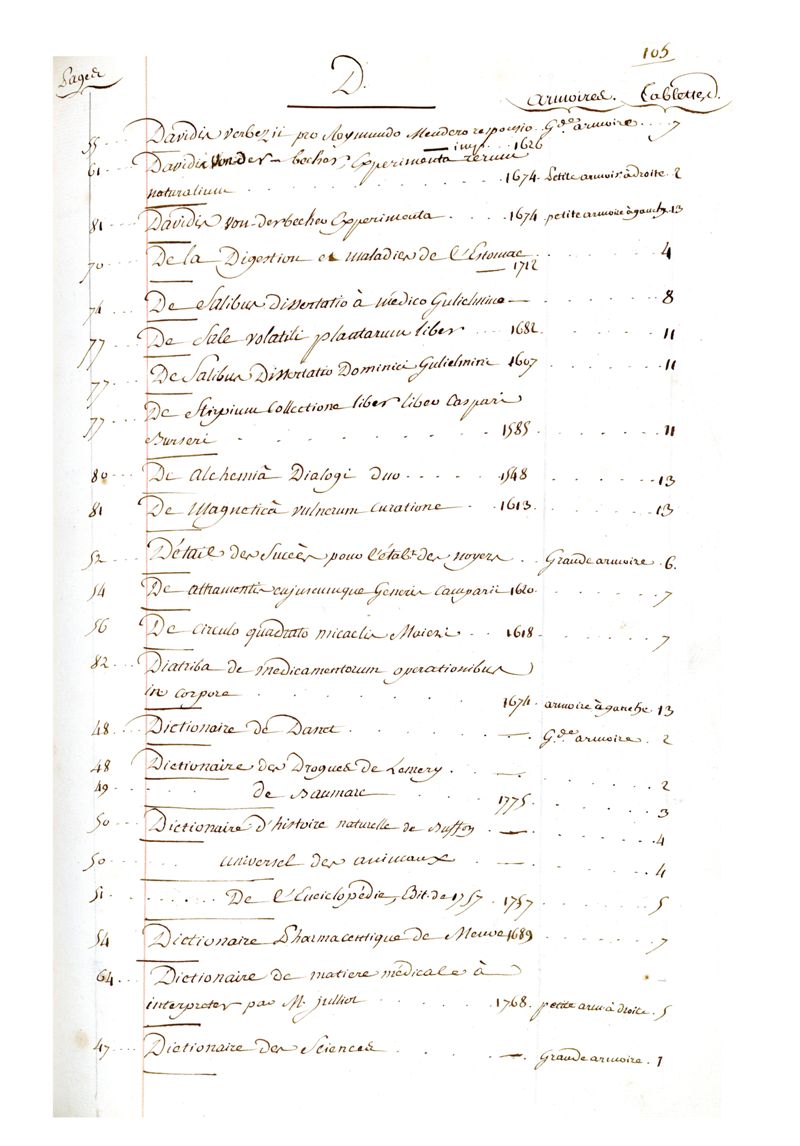 105
Pages
D.
armoires. Tablettes.
55 Davidis verbezii pro Raymundo Mendero responsio G.de armoire 7
imp. 1626
61 Davidis von-der-becher Experimenta rerum
naturalium 1674. Petite armoir. à droite. 2
81 Davidis von-derbecher Experimenta 1674 petite armoire à gauche. 13
70 De la Digestion et maladies de l'Estomac 4
1712
74 De Salibus dissertatio à médico Gulielmine — 8
77 De Sale volatili plantarum liber 1682 11
77 De Salibus Dissertatio Dominici Gulielmini 1607 11
77 De Stirpium Collectione liber Caspari
Burseri 1585 11
80 De alchemiâ Dialogi duo 1548 13
81 De Magneticâ vulnerum curatione 1613. 13
52 Détail des Succès pour l'étabt. des noyers Grande armoire 6.
54 De atramentis cujuscumque Generis Camparii 1620 7
56 De circulo quadrato micaelis Moieri 1618 7
82 Diatriba de medicamentorum operationibus
in corpore 1674. armoire à gauche. 13
48 Dictionaire de Danet — G.de armoire 2
48 Dictionaire des Drogues de Lemery — 2
49 de Baumare 1775 3
50 Dictionaire d'histoire naturelle de Buffon — 4
50 universel des animaux — 4
51 De l'Enciclopédie, Edit. de 1757 1757 5
54 Dictionaire Pharmaceutique de Meuve 1689 7
64 Dictionaire de matiere médicale à
interpreter par M. julliot 1768. petite arm. à droite. 5
47 Dictionaire des Sciences — Grande armoire. 1